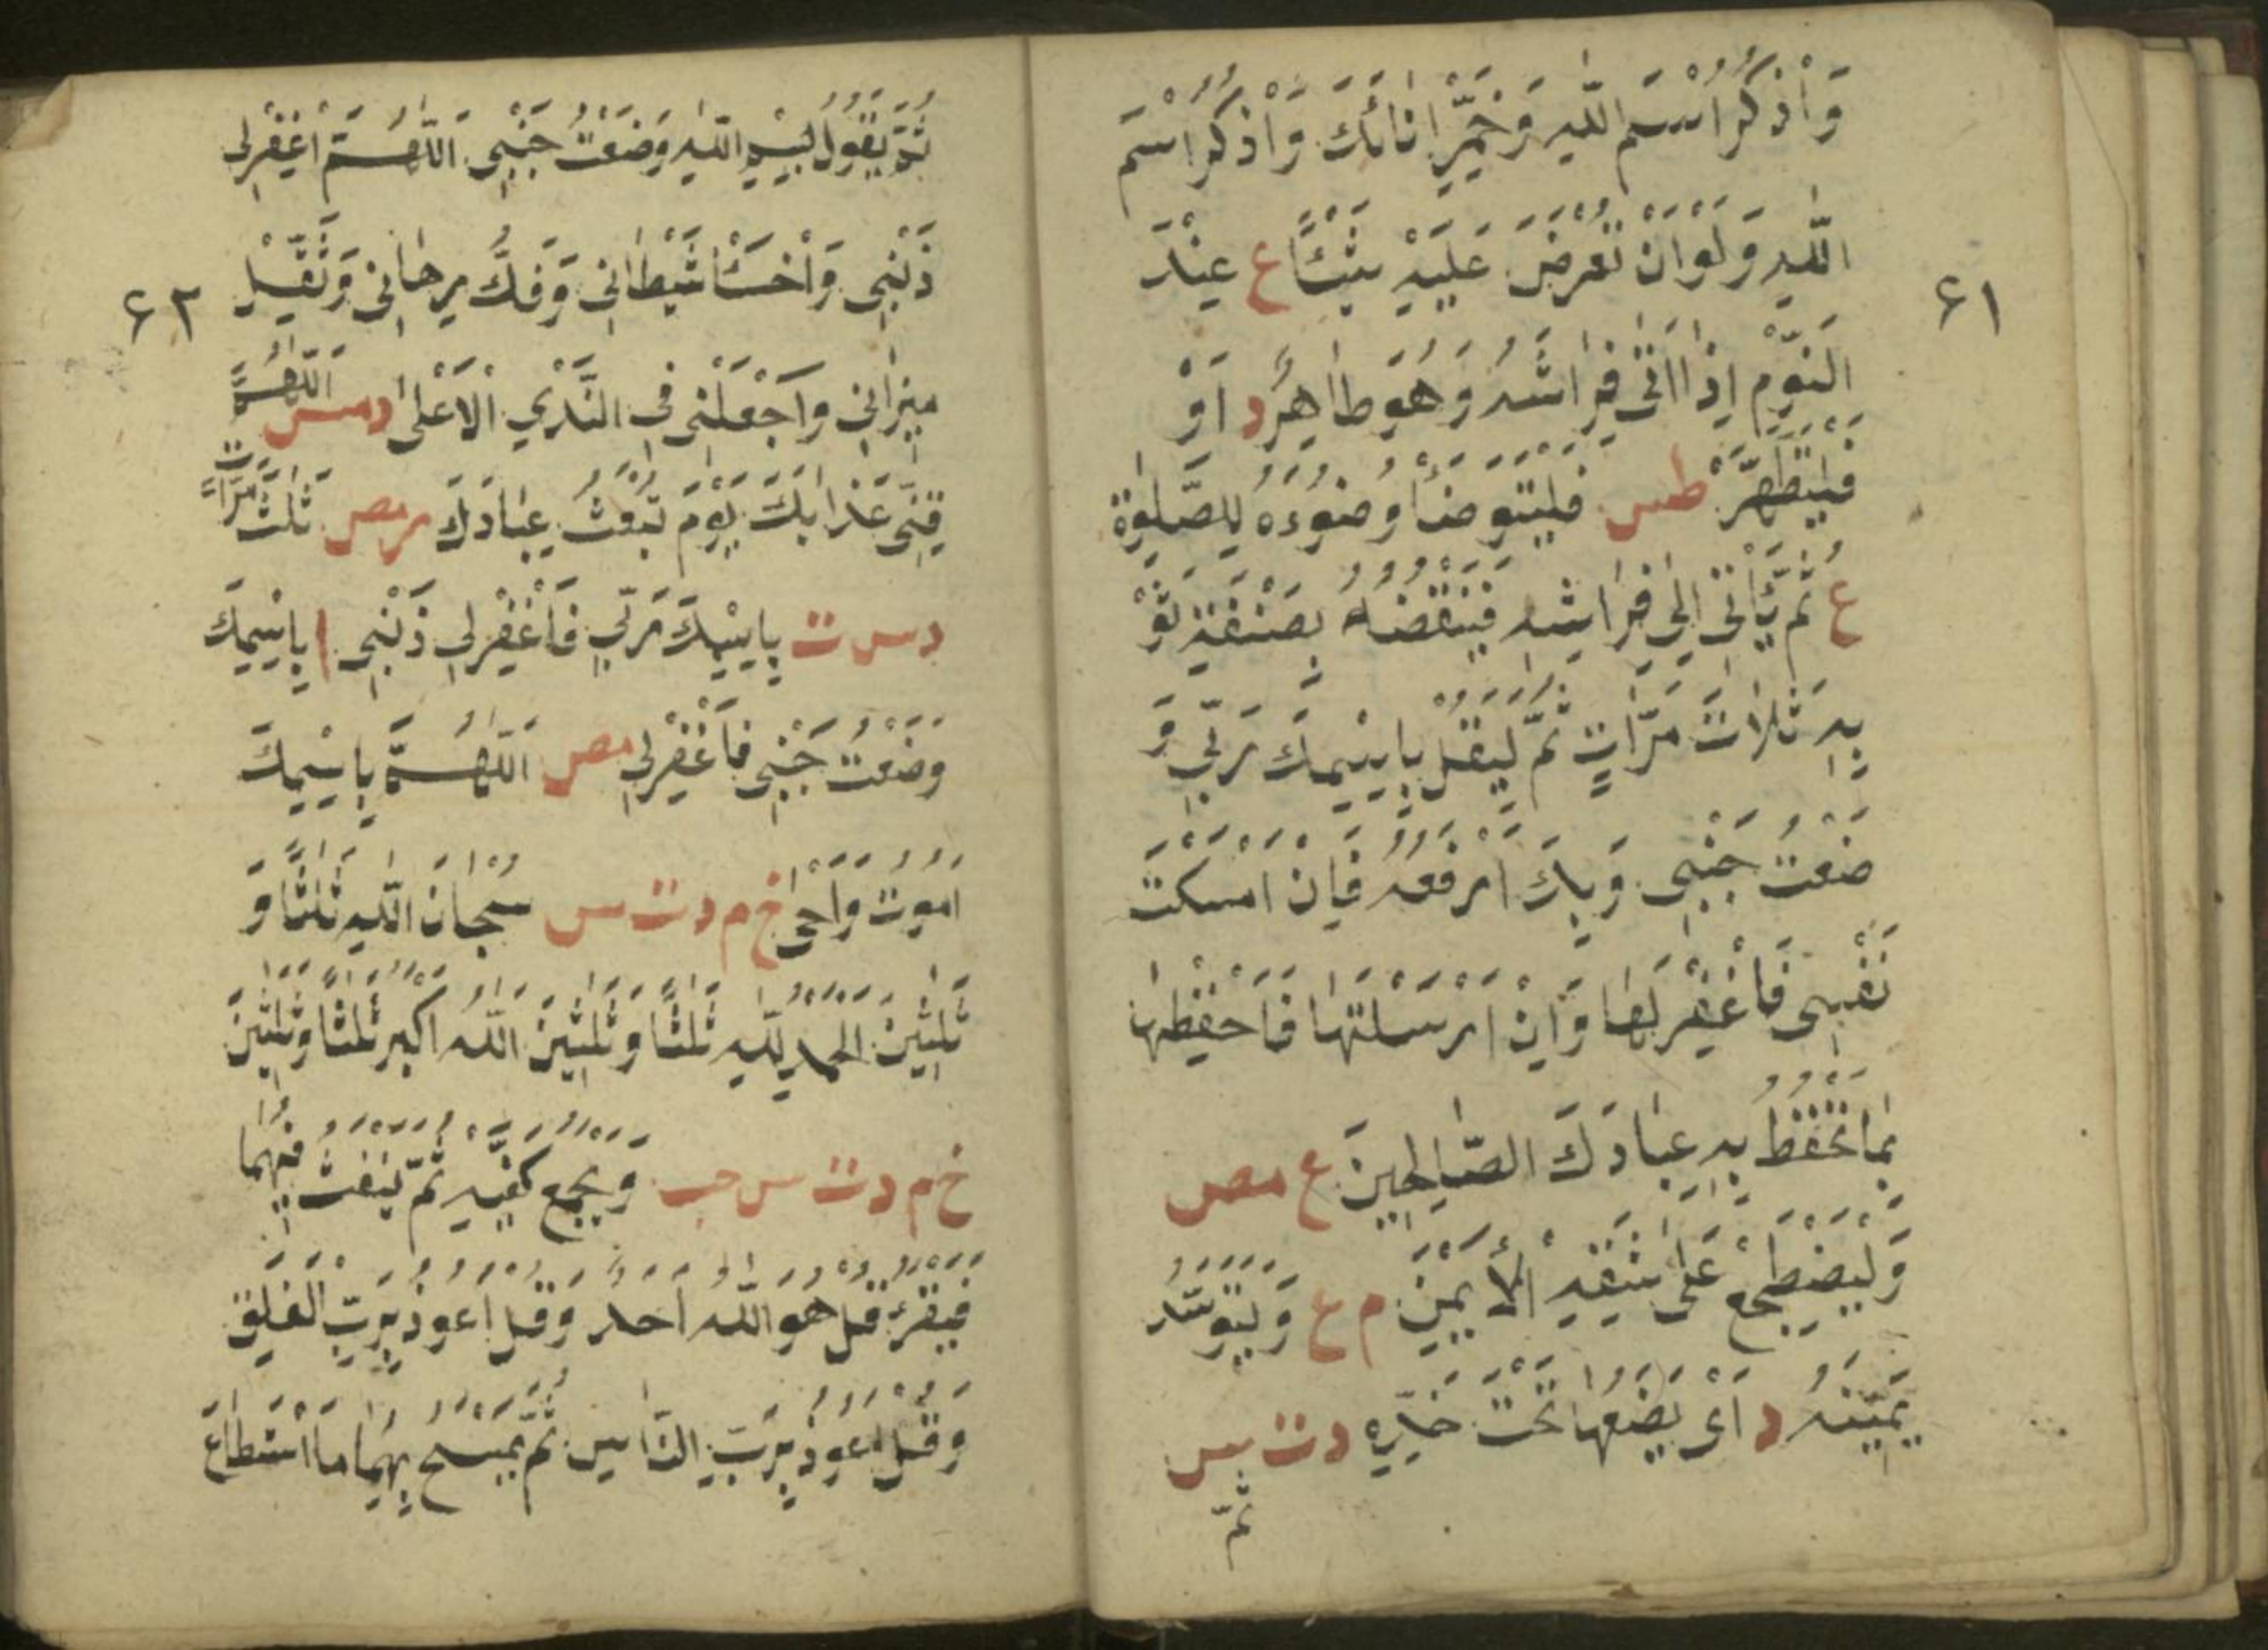 وَاذْكُرِ اسْمَ اللّٰهِ وَخَمِّرْ اِنَائَكَ وَاذْكُرِ اسْمَ
اللّٰهِ وَلَوْ اَنْ تَعْرُضَ عَلَيْهِ شَيْئًا ع عِنْدَ
۶۱
النَّوْمِ اِذَا اَتٰى فِرَاشَهُ وَهُوَ طَاهِرٌ د اَوْ
فَلْيَتَطَهَّرْ طس فَلْيَتَوَضَّأْ وُضُوْءَهُ لِلصَّلٰوةِ
ع ثُمَّ يَأْتِىْ اِلٰى فِرَاشِهِ فَيَنْفُضُهُ بِصَنِفَةِ ثَوْ
بِهِ ثَلَاثَ مَرَّاتٍ ثُمَّ لِيَقُلْ بِاسْمِكَ رَبِّىْ وَ
ضَعْتُ جَنْبِىْ وَبِكَ اَرْفَعُهُ فَاِنْ اَمْسَكْتَ
نَفْسِىْ فَاغْفِرْ لَهَا وَاِنْ اَرْسَلْتَهَا فَاحْفَظْهَا
بِمَا تَحْفَظُ بِهِ عِبَادَكَ الصَّالِحِيْنَ ع مص
وَلْيَضْطَجِعْ عَلٰى شِقِّهِ الْاَيْمَنِ م ع وَلْيَتَوَسَّدْ
يَمِيْنَهُ د اَىْ يَضَعُهَا تَحْتَ خَدِّهِ د ت س
ثُمَّ
ثُمَّ يَقُوْلُ بِسْمِ اللّٰهِ وَضَعْتُ جَنْبِىْ اَللّٰهُمَّ اغْفِرْلِى
ذَنْبِىْ وَاخْسَأْ شَيْطَانِىْ وَفُكَّ رِهَانِىْ وَثَقِّلْ
۶۲
مِيْزَانِىْ وَاجْعَلْنِىْ فِى النَّدِيِّ الْاَعْلٰى د مس اَللّٰهُمَّ
قِنِىْ عَذَابَكَ يَوْمَ تَبْعَثُ عِبَادَكَ ر مص ثَلٰثَ مَرَّاتٍ
د س ت بِاسْمِكَ رَبِّىْ فَاغْفِرْلِىْ ذَنْبِىْ ا بِاسْمِكَ
وَضَعْتُ جَنْبِىْ فَاغْفِرْلِىْ مص اَللّٰهُمَّ بِاسْمِكَ
اَمُوْتُ وَاَحْىٰ خ م د ت س سُبْحَانَ اللّٰهِ ثَلٰثًا وَ
ثَلٰثِيْنَ اَلْحَمْدُ لِلّٰهِ ثَلٰثًا وَثَلٰثِيْنَ اَللّٰهُ اَكْبَرُ ثَلٰثًا وَثَلٰثِيْنَ
خ م د ت س حب وَيَجْمَعُ كَفَّيْهِ ثُمَّ يَنْفُثُ فِيْهِمَا
فَيَقْرَءُ قُلْ هُوَ اللّٰهُ اَحَدٌ وَقُلْ اَعُوْذُ بِرَبِّ الْفَلَقِ
وَقُلْ اَعُوْذُ بِرَبِّ النَّاسِ ثُمَّ يَمْسَحُ بِهِمَا مَا اسْتَطَاعَ